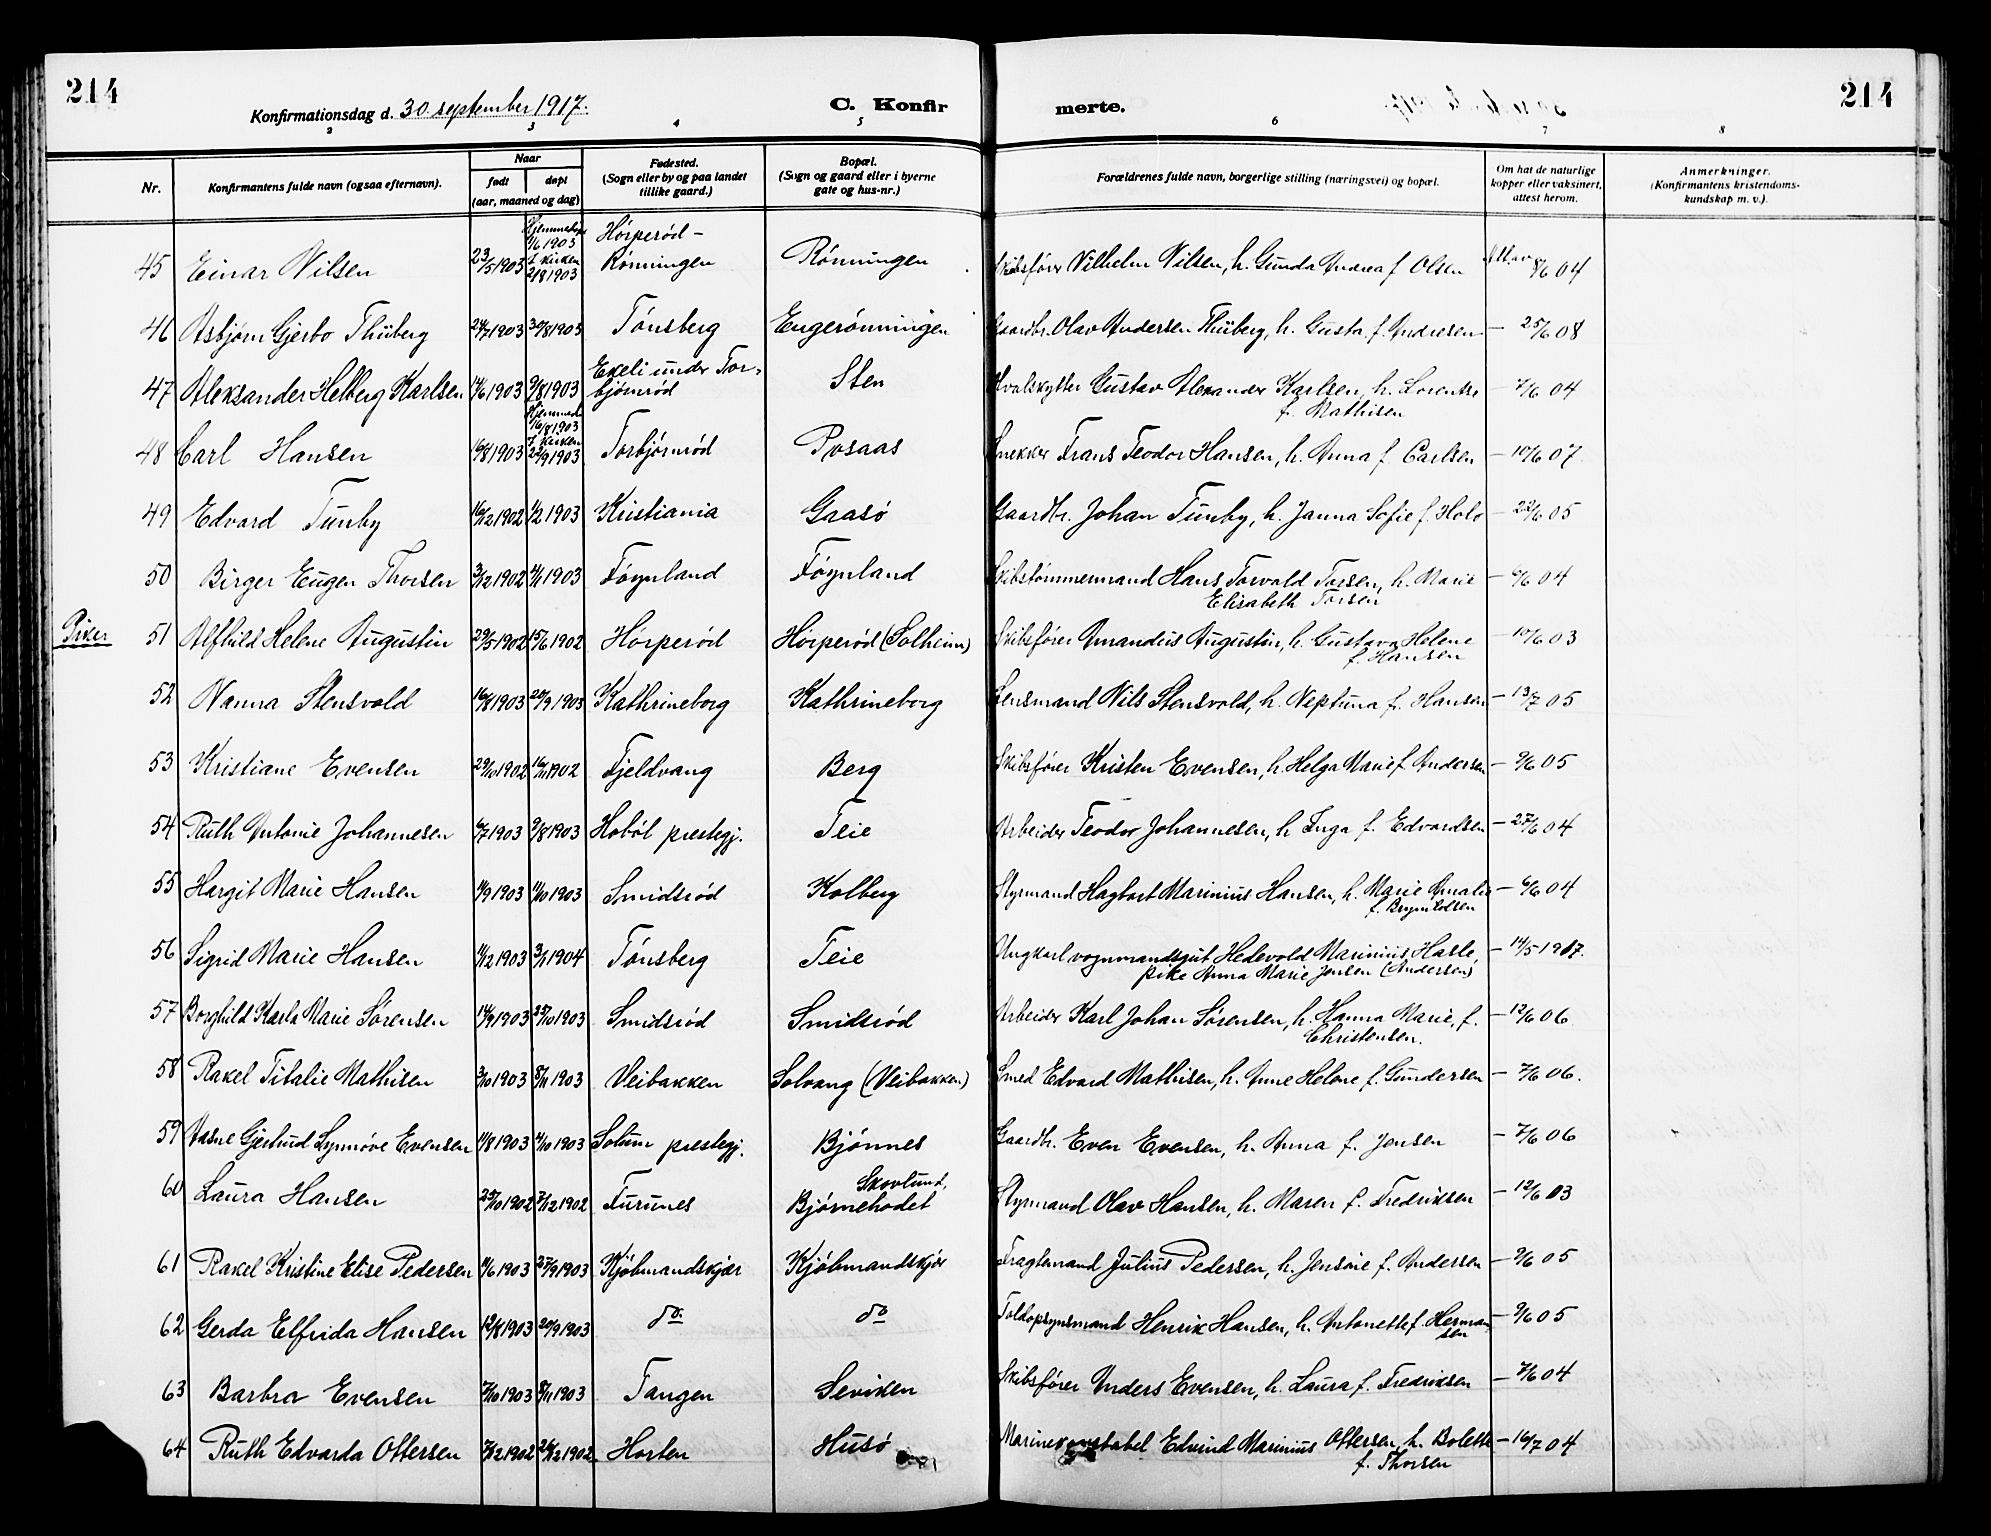 214
Konfirmationsdag d. 30 september 1917.
C. Konfir
merte.
214
2 3 4 5 6 7 8
Nr.
Konfirmantens fulde navn (ogsaa efternavn).
Naar
født
døpt
(aar, maaned og dag)
Fødested.
(Sogn eller by og paa landet
tillike gaard.)
Bopæl.
(Sogn og gaard eller i byerne
gate og hus-nr.)
Forældrenes fulde navn, borgerlige stilling (næringsvei) og bopæl.
Om hat de naturlige
kopper eller vaksinert,
attest herom.
Anmerkninger.
(Konfirmantens kristendoms-
kundskap m. v.).
45 Einar Nilsen 23/5 1903 1/6 1903 I Kirken 2/8 1903 Hørperød - Rønningen Rønningen Skibsfører Vilhelm Nilsen, h. Gunda Andrea f. Olsen Att. av 8/6 04
46 Asbjørn Gjerbo Thüberg 24/7 1903 30/8 1903 Tønsberg Engerønningen Gaardbr. Olav Andersen Thüberg, h. Gusta f. Andresen — 25/6 08
47 Aleksander Helberg Karlsen 14/6 1903 9/8 1903 Ekeli under Torbjørnrød Sten Hvalskytter Gustav Alexander Karlsen, h. Lorentse — 7/6 04
f. Mathisen
48 Carl Hansen 16/8 1903 16/8 1903 I Kirken 22/9 1903 Torbjørnrød Rosaas Snekker Frans Teodor Hansen, h. Anna f. Carlsen — 10/6 07
49 Edvard Tunby 16/12 1902 1/2 1903 Kristiania Gaasø Gaardbr. Johan Tunby, h. Janna Sofie f. Holo — 22/6 05
50 Birger Eugen Thorsen 3/12 1902 4/1 1903 Føynland Føynland Skibstømmermand Hans Torvald Torsen, h. Marie — 6/6 04
Elisabeth Torsen
Piker
51 Alfhild Helene Augustin 29/5 1902 15/6 1902 Hørperød Hørperød (Solheim) Skibsfører Amandus Augustin, h. Gustava Helene — 10/6 03
f. Hansen
52 Nanna Stensvold 16/8 1903 20/9 1903 Kathrineborg Kathrineborg Lensmand Nils Stensvold, h. Neptuna f. Hansen — 13/7 05
53 Kristiane Evensen 29/10 1902 16/11 1902 Fjeldvang Berg Skibsfører Kristen Evensen, h. Helga Marie f. Andersen — 9/6 05
54 Ruth Antonie Johannesen 6/7 1903 9/8 1903 Hobøl prestegj. Teie Arbeider Teodor Johannesen, h. Inga f. Edvardsen — 27/6 04
55 Hargit Marie Hansen 1/9 1903 11/10 1903 Smidsrød Kolberg Styrmand Hagbart Marinius Hansen, h. Marie Amalie — 6/6 04
f. Brynildsen
56 Sigrid Marie Hansen 11/12 1903 3/1 1904 Tønsberg Teie Ungkarl vognmandsgut Hedevold Marinius Hasle, — 14/5 1917.
pike Anna Marie Jensen (Andersen)
57 Borghild Karla Marie Sørensen 14/9 1903 25/10 1903 Smidsrød Smidsrød Arbeider Karl Johan Sørensen, h. Hanna Marie, f. — 12/6 06
Christensen.
58 Rakel Titalie Mathisen 3/10 1903 8/11 1903 Veibakken Solvang (Veibakken) Smed Edvard Mathisen, h. Anne Helene f. Gundersen — 7/6 06.
59 Aasne Gjertrud Synnøve Evensen 11/8 1903 4/10 1903 Solum prestegj. Bjønnes Gaardbr. Even Evensen, h. Anna f. Jensen — 7/6 06
60 Laura Hansen 25/10 1902 7/12 1902 Furunes Skovlund, Bjørnehodet Styrmand Olav Hansen, h. Maren f. Fredriksen — 12/6 03
61 Rakel Kristine Elise Pedersen 11/6 1903 27/9 1903 Kjøbmandskjær Kjøbmandskjær Fragtemand Julius Pedersen, h. Jensine f. Andersen — 9/6 05
62 Gerda Elfrida Hansen 12/8 1903 20/9 1903 do. do Toldopsynsmand Henrik Hansen, h. Antonette f. Herman- — 9/6 05
sen
63 Barbra Evensen 7/10 1903 8/11 1903 Tangen Seviken Skibsfører Anders Evensen, h. Laura f. Fredriksen — 7/6 04
64 Ruth Edvarda Ottersen 7/12 1902 26/12 1902 Horten Husø Marinekonstabel Edvind Marinius Ottersen, h. Bolette — 16/7 04
f. Thorsen